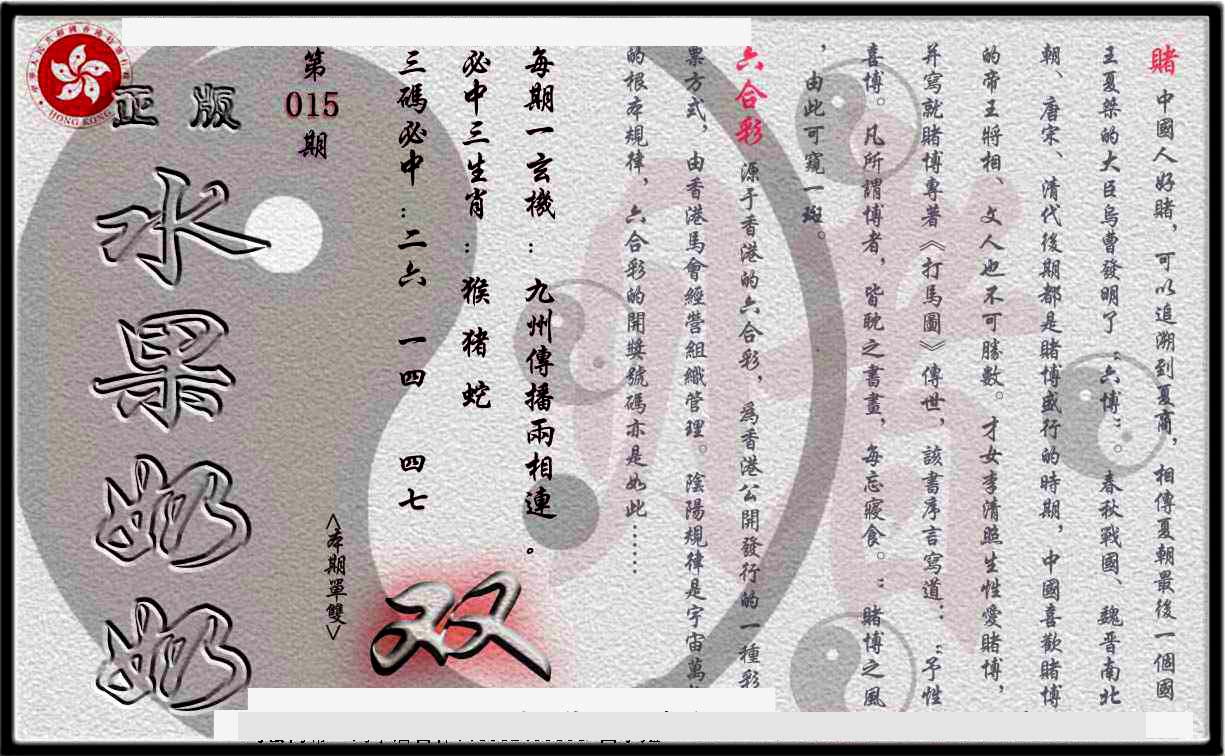 賭 中國人好賭，可以追溯到夏商，相傳夏朝最後一個國
王夏桀的大臣烏曹發明了“六博”。春秋戰國、魏晋南北
朝、唐宋、清代後期都是賭博盛行的時期，中國喜歡賭博
的帝王將相、文人也不可勝數。才女李清照生性愛賭博，
并寫就賭博專著《打馬圖》傳世，該書序言寫道：“予性
喜博。凡所謂博者，皆耽之書畫，每忘寢食。”賭博之風
，由此可窺一斑。
六合彩 源于香港的六合彩，為香港公開發行的一種彩
票方式，由香港馬會經營組織管理。陰陽規律是宇宙萬
的根本規律，六合彩的開獎號碼亦是如此……
每期一玄機：九州傳播兩相連。
必中三生肖：猴 豬 蛇
三碼必中：二六 一四 四七
<本期單雙>
双
第015期
正版
水果奶奶
HONG KONG